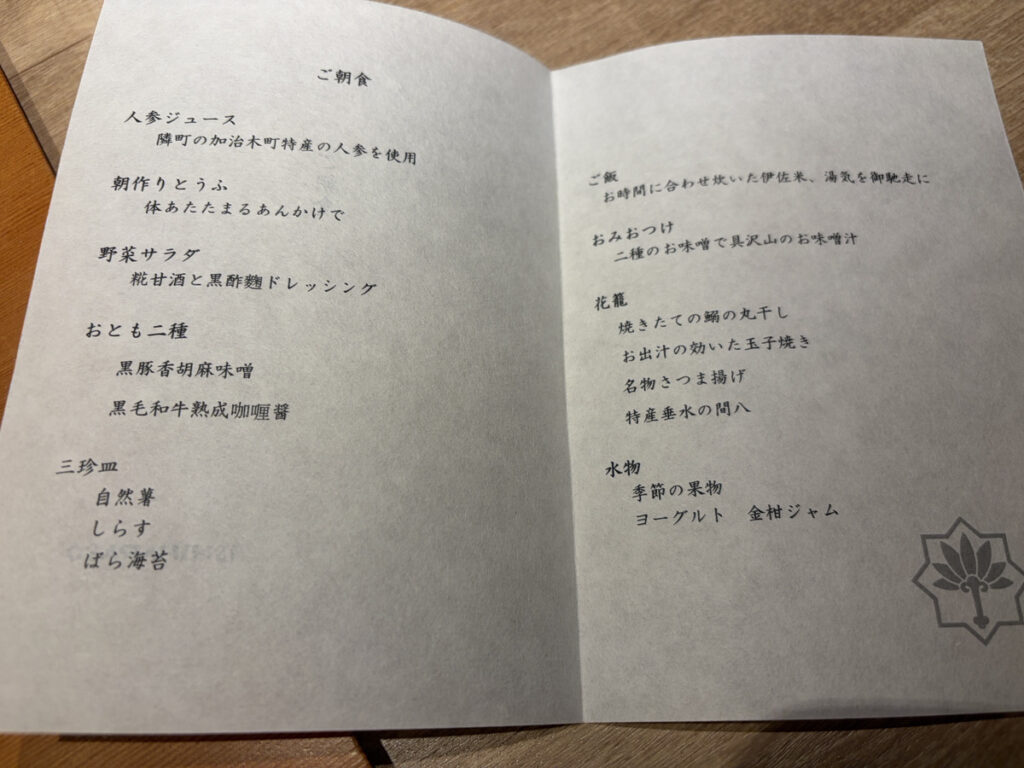 ご朝食
人参ジュース
隣町の加治木町特産の人参を使用
朝作りとうふ
体あたたまるあんかけで
野菜サラダ
糀甘酒と黒酢麴ドレッシング
おとも二種
黒豚香胡麻味噌
黒毛和牛熟成咖喱醤
三珍皿
自然薯
しらす
ばら海苔
ご飯
お時間に合わせ炊いた伊佐米、湯気を御馳走に
おみおつけ
二種のお味噌で具沢山のお味噌汁
花籠
焼きたての鰯の丸干し
お出汁の効いた玉子焼き
名物さつま揚げ
特産垂水の間八
水物
季節の果物
ヨーグルト　金柑ジャム